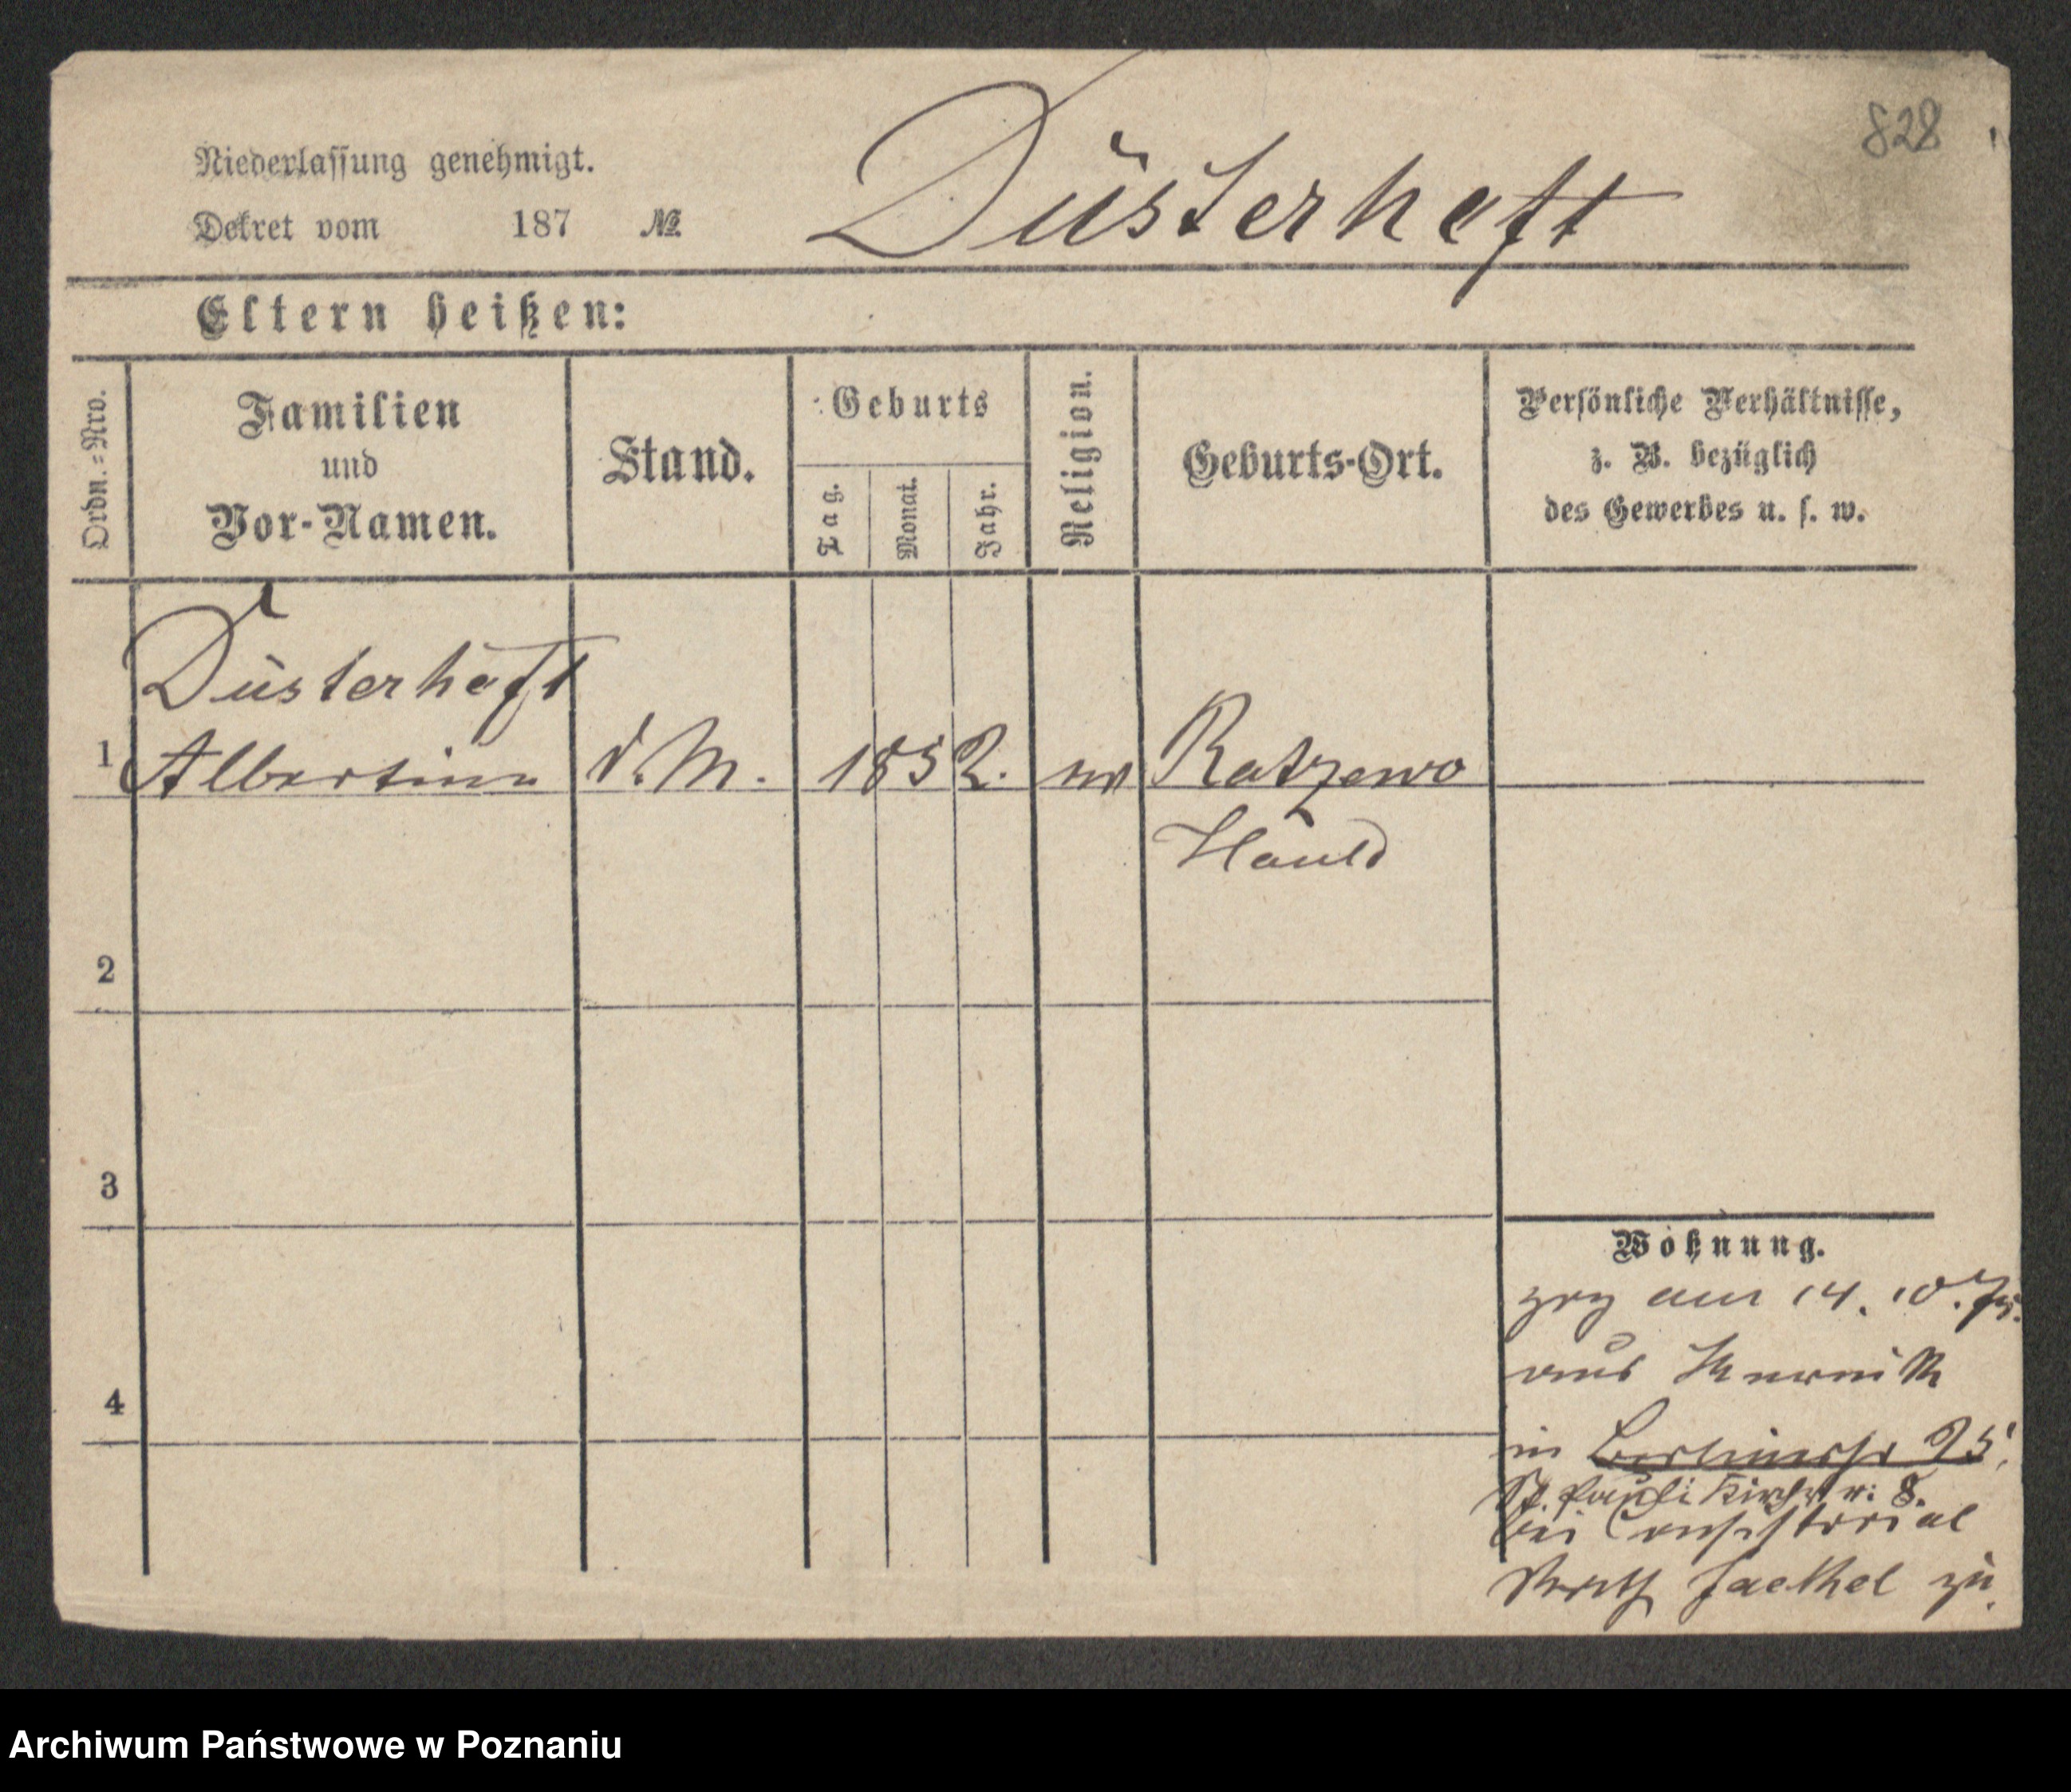 828
Niederlassung genehmigt.
Dekret vom 187 №
Düsterheft
Eltern heißen:
Ordn.=Nro.
Familien
und
Vor-Namen.
Stand.
Geburts
Tag.
Monat.
Jahr.
Religion.
Geburts-Ort.
Persönliche Verhältnisse,
z. B. bezüglich
des Gewerbes u. s. w.
Düsterhöft
1 Albertine d. M. 1852. ev Ratzewo
Hauld
2
3
4
Wohnung.
zog am 14. 10. 75.
aus Kurnik
in Berlinerstr 25.
St. Pauli Kirchstr: 8.
bei Consistorial
Rath Jaekel zu.
Archiwum Państwowe w Poznaniu